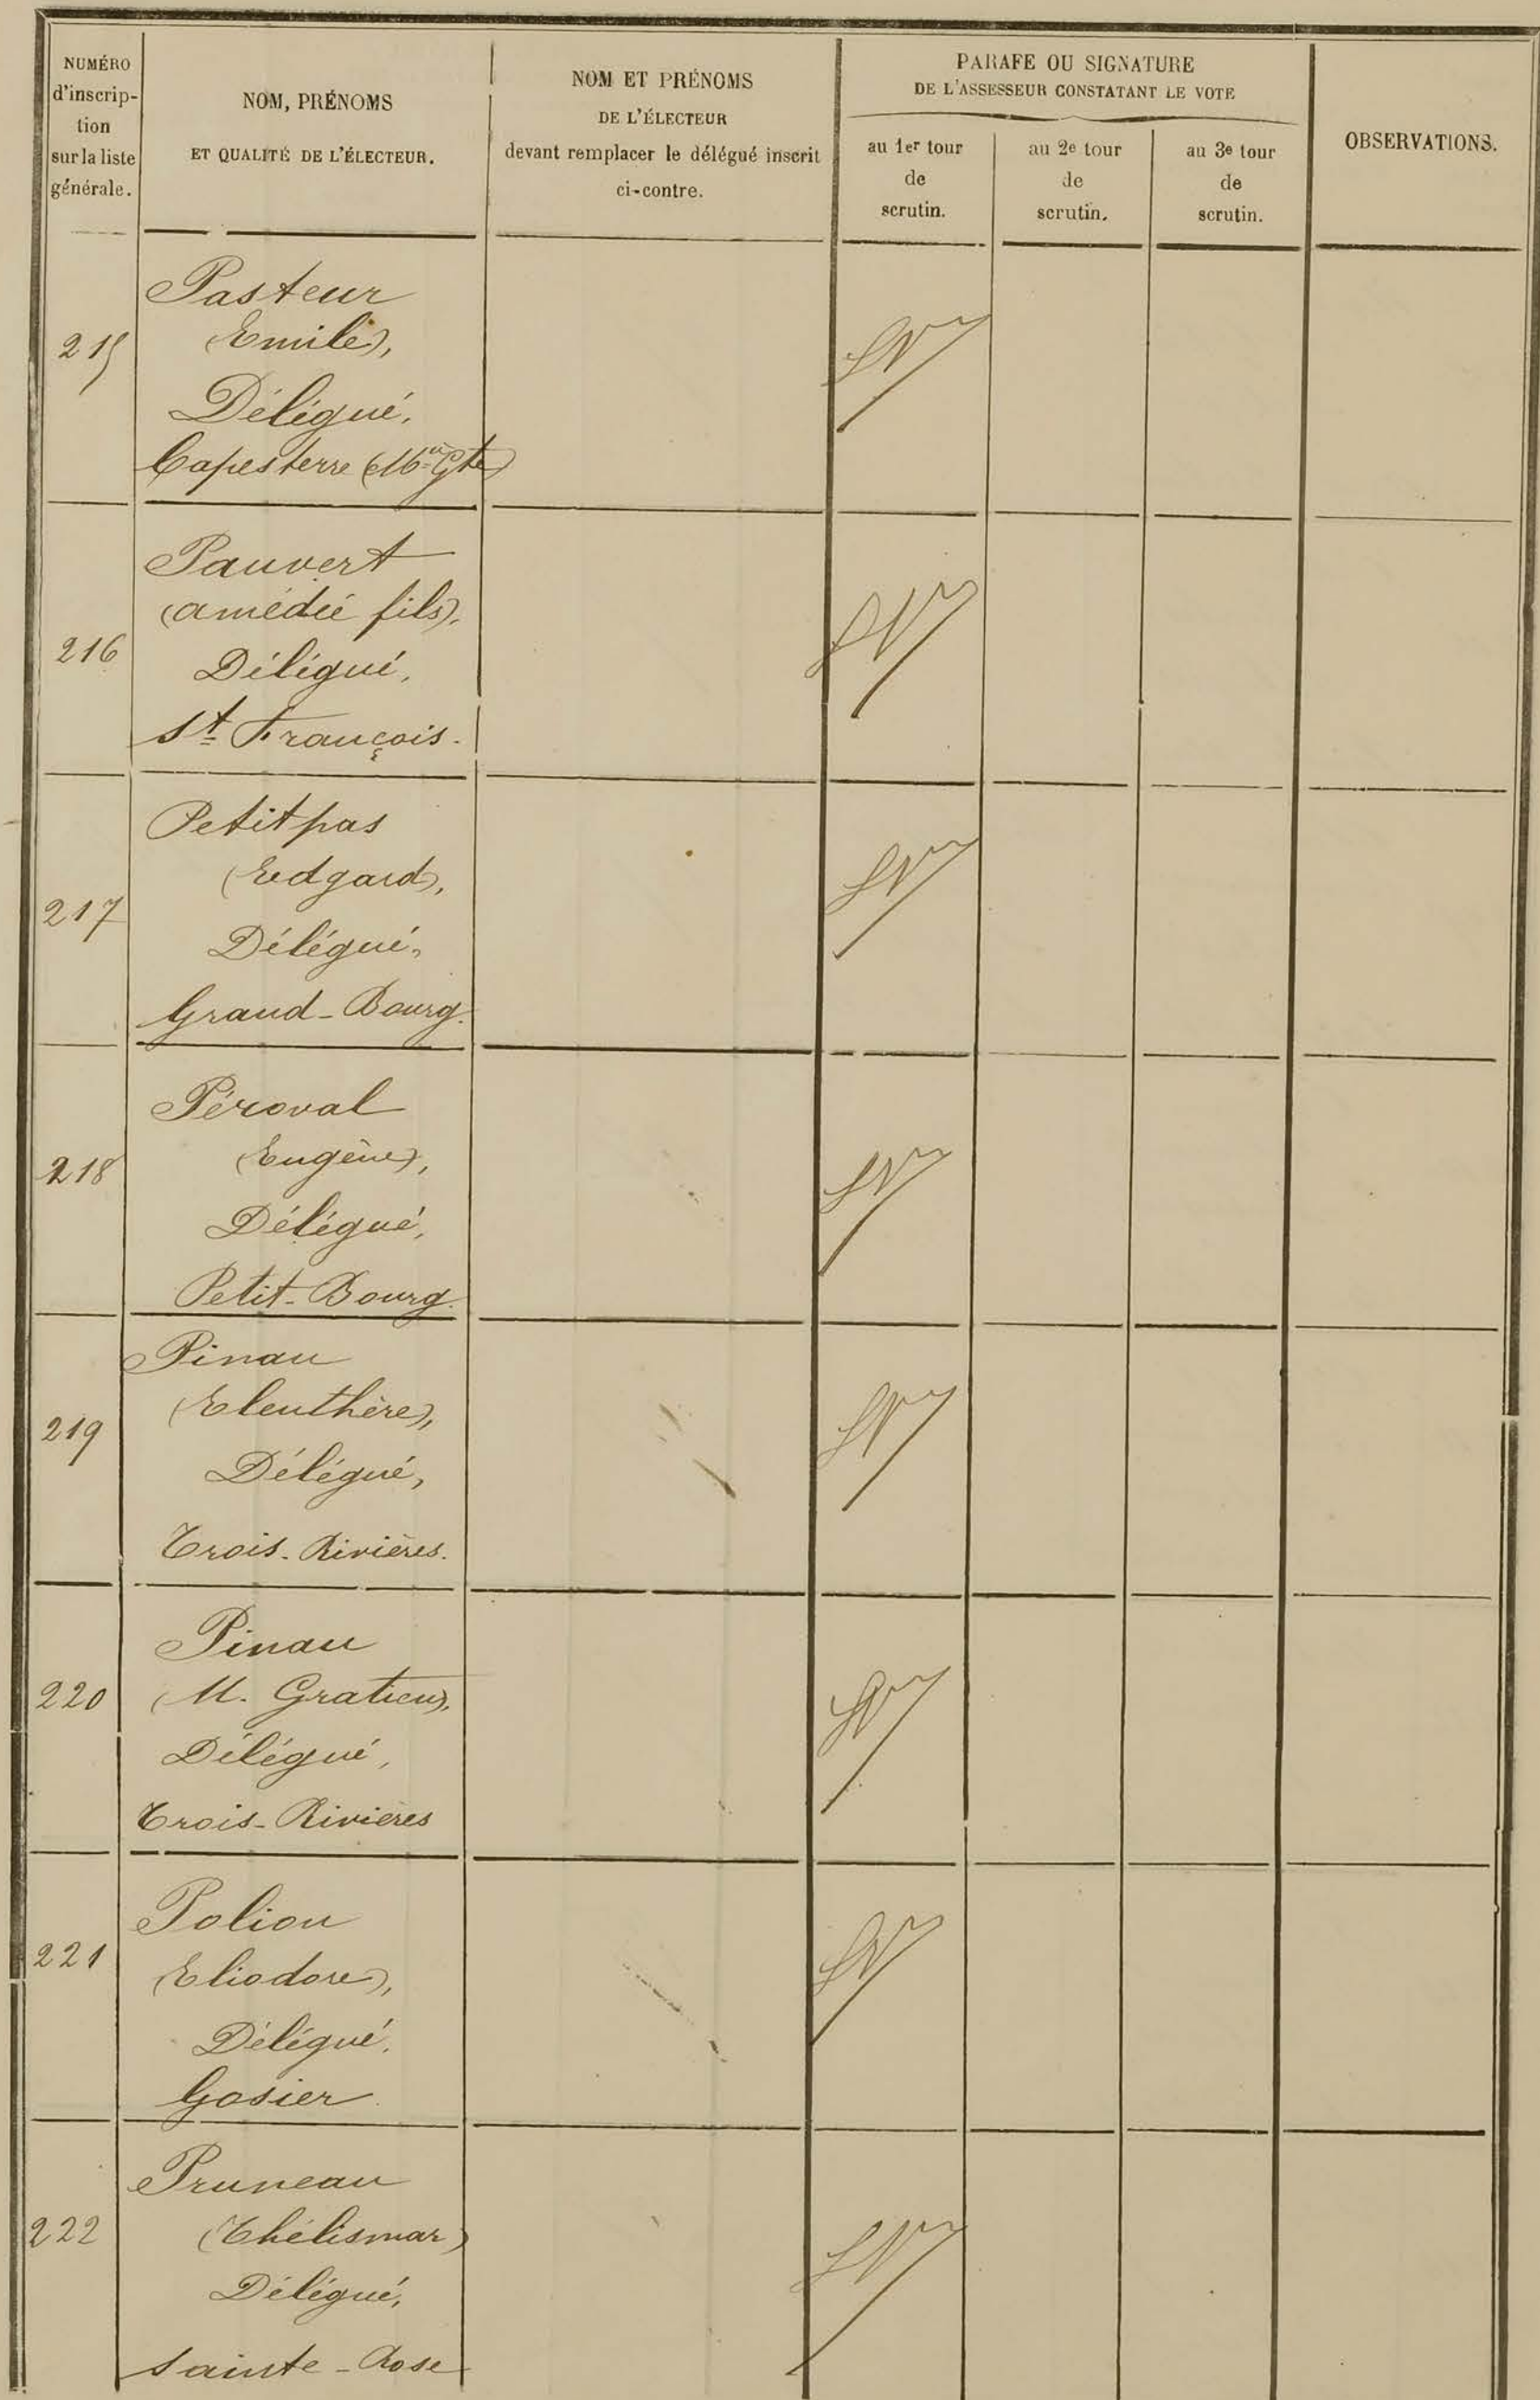 NUMÉRO
d'inscrip-
tion
sur la liste
générale.
NOM, PRÉNOMS
ET QUALITÉ DE L'ÉLECTEUR.
NOM ET PRÉNOMS
DE L'ÉLECTEUR
devant remplacer le délégué inscrit
ci-contre.
PARAFE OU SIGNATURE
DE L'ASSESSEUR CONSTATANT LE VOTE
au 1er tour
de
scrutin.
au 2e tour
de
scrutin.
au 3e tour
de
scrutin.
OBSERVATIONS.
215
Pasteur
(Emile),
Délégué,
Capesterre (Mie Gte)
216
Pauvert
(Amédée fils),
Délégué,
St François.
217
Petitpas
(Edgard),
Délégué,
Grand-Bourg.
218
Péroval
(Eugène),
Délégué,
Petit-Bourg.
219
Pinau
(Eleuthère),
Délégué,
Trois-Rivières.
220
Pinau
(M. Gratien),
Délégué,
Trois-Rivières
221
Polion
(Eliodore),
Délégué.
Gosier.
222
Pruneau
(Thélismar)
Délégué,
Sainte-Rose